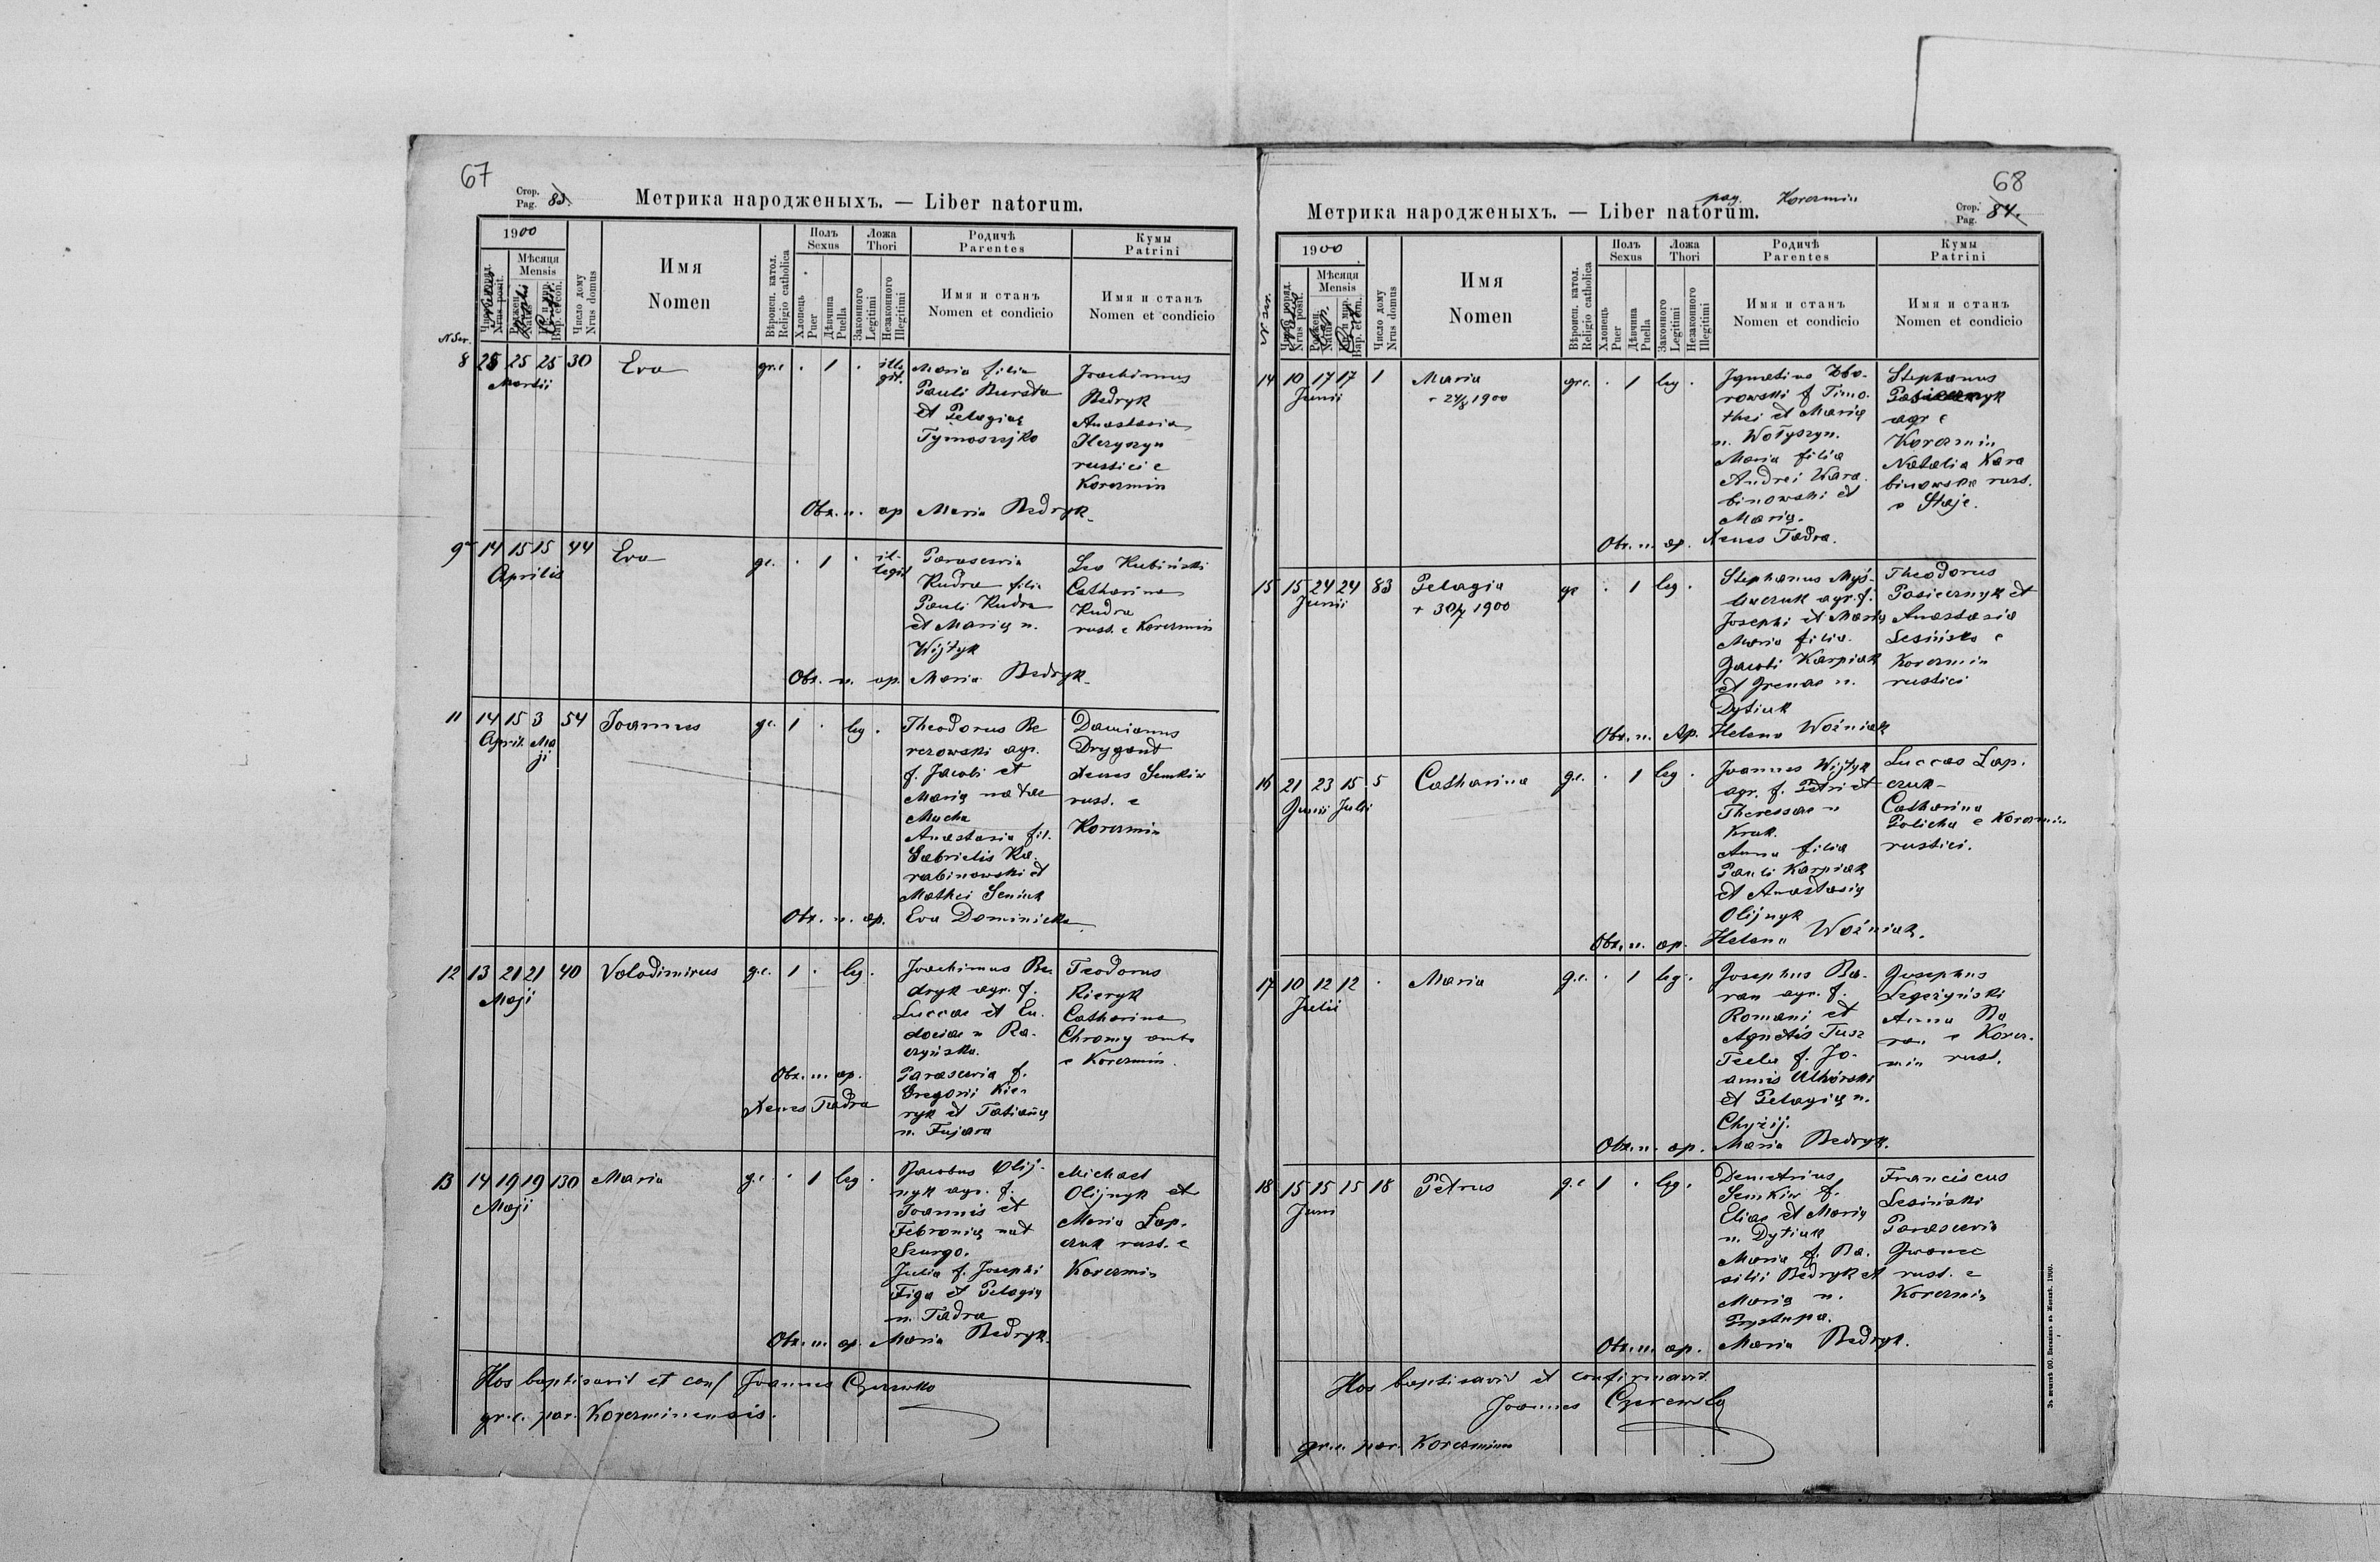 67
Стор. Pag. 83.
Метрика народженыхъ. — Liber natorum.
1900
Мѣсяця
Mensis
Число поряд.
Nrus posit.
Число дому
Nrus domus
Имя
Nomen
Вѣроисп. катол.
Religio catholica
Полъ
Sexus
Хлопець
Puer
Дѣвчина
Puella
Ложа
Thori
Законного
Legitimi
Незаконного
Illegitimi
Родичѣ
Parentes
Имя и станъ
Nomen et condicio
Кумы
Patrini
Имя и станъ
Nomen et condicio
N Ser.
8 25 25 25 30 Eva gr.c . 1 . ille
Martii
git.
Maria filia
Pauli Bursda
et Pelagiaę
Tymoszejko
Joachimus
Bedryk
Anastasia
rustici e
Korczmin
Obs. n. ap Maria Bedryk
9 14 15 15 44 Eva gc. . 1 . il-
Aprilis
legit
Parascevia
Kudra filia
Pauli Kudra
et Marię n.
Wijtyk
Leo Kubiński
Catharina
Kudra
rust. e Korczmin
Obs. n. ap. Maria Bedryk
11 14 15 3 54 Joannes gc. 1 . leg .
April. Ma
ji
Theodorus Be
rezowski agr.
f. Jacobi et
Marię natae
Mucha
Anastasia fil.
Gabrielis Ka.
rabinowski et
Mathei Seniuk
Damianus
Drygant
Xenes Semkiw
rust. e
Korczmin
Obs. n. ap. Eva Dominicka
12 13 21 21 40 Volodimirus g.c. 1 . leg.
Maji
Joachimus Be
dryk agr. f.
Luccae et Eu.
dociae n Ra.
czyńska.
Parascevia f.
Gregorii Kie
ryk et Tatianę
n. Fujara
Teodorus
Kieryk
Catharina
Chromy ambo
e Korczmin.
Obs. n. ap.
Xenes Tadra
13 14 19 19 130 Maria g.c . 1 leg .
Maji
Jacobus Olij-
nyk agr. f.
Joannis et
Febronię nat
Szurgo.
Julia f. Josephi
Figa et Pelagię
n. Tadra
Michael
Olijnyk et
Maria Łap.
czuk rust. e
Korczmin
Obs. n. ap. Maria Bedryk.
Hos baptisavit et conf Joannes
gr.c. par. Korczminensis.
68
pag. Korczmin
Метрика народженыхъ. — Liber natorum.
Стор. Pag. 84.
1900
Мѣсяця
Mensis
Число поряд.
Nrus posit.
Число дому
Nrus domus
Имя
Nomen
Вѣроисп. катол.
Religio catholica
Полъ
Sexus
Хлопець
Puer
Дѣвчина
Puella
Ложа
Thori
Законного
Legitimi
Незаконного
Illegitimi
Родичѣ
Parentes
Имя и станъ
Nomen et condicio
Кумы
Patrini
Имя и станъ
Nomen et condicio
14 10 17 17 1 Maria grc. . 1 leg .
Junii
+ 24/8 1900
Ignatius Zbo-
rowski f Timo.
thei et Marię
n. Wołyszyn.
Maria filia
Andrei Kara.
binowski et
Marię.
Stephanus
agr e
Korczmin
Natalia Kara
binowska rust.
e Staje.
Obs. n. ap. Xenes Tadra.
15 15 24 24 83 Pelagia gc . 1 leg .
Junii
+ 30/7 1900
Stephanus Myś-
liwczuk agr. f.
Josephi et Marię
Maria filia.
Jacobi Karpiak
et Irenae n.
Dytiuk
Theodorus
Pasiecznyk et
Anastasia
Lesińska e
Korczmin
rustici
Obs. n. Ap. Helena Woźniak
16 21 23 15 5 Catharina g.c. . 1 leg .
Junii Julii
Joannes Wijtyk
agr. f. Petri et
Theressae n
Kruk.
Anna filia
Pauli Karpiak
et Anastasię
Olijnyk
Luccas Łap.
czuk
Catharina
Policha e Korczmin
rustici.
Obs. n. ap. Helena Woźniak.
17 10 12 12 . Maria g.c. . 1 leg .
Julii
Josephus Ba-
ran agr. f.
Romani et
Agnetis Tusz
Tecla f. Jo-
annis Uhórski
et Pelagię n.
Chyżij.
Josephus
Legeżyński
Anna Ba
ran e Korcz.
min rust.
Obs. n. ap. Maria Bedryk.
18 15 15 15 18 Petrus g.c 1 . leg.
Juni
Demetrius
Semkiw f.
Eliae et Marię
n. Dytiuk
Maria f. Ba.
silii Bedryk et
Marię n.
Prystupa.
Franciscus
Lesiński
Parascevia
Iwanec
rust. e
Korczmin
Obs. n. ap. Maria Bedryk.
Hos baptisavit et confirmavit
Joannes
gr.c. par. Korczmin